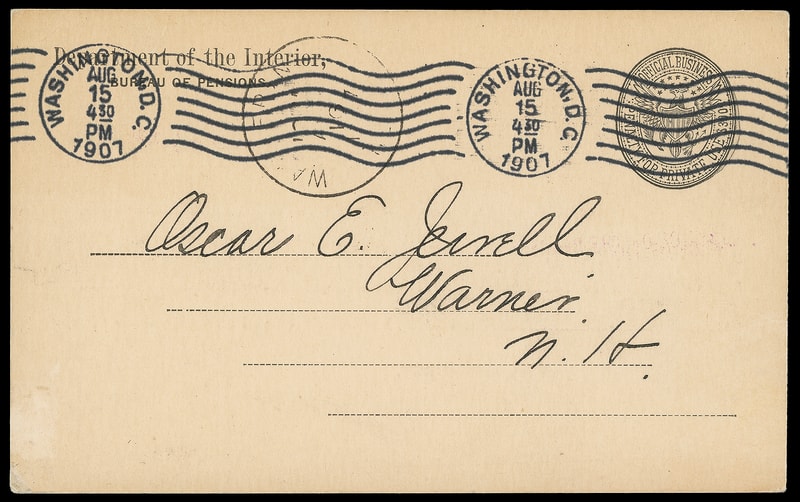 Department of the Interior,
BUREAU OF PENSIONS
WASHINGTON, D.C.
AUG
15
430
PM
1907
WASHINGTON, D.C.
AUG
15
430
PM
1907
OFFICIAL BUSINESS
PENALTY FOR PRIVATE USE $300
Oscar E. Jewell
Warner
N. H.